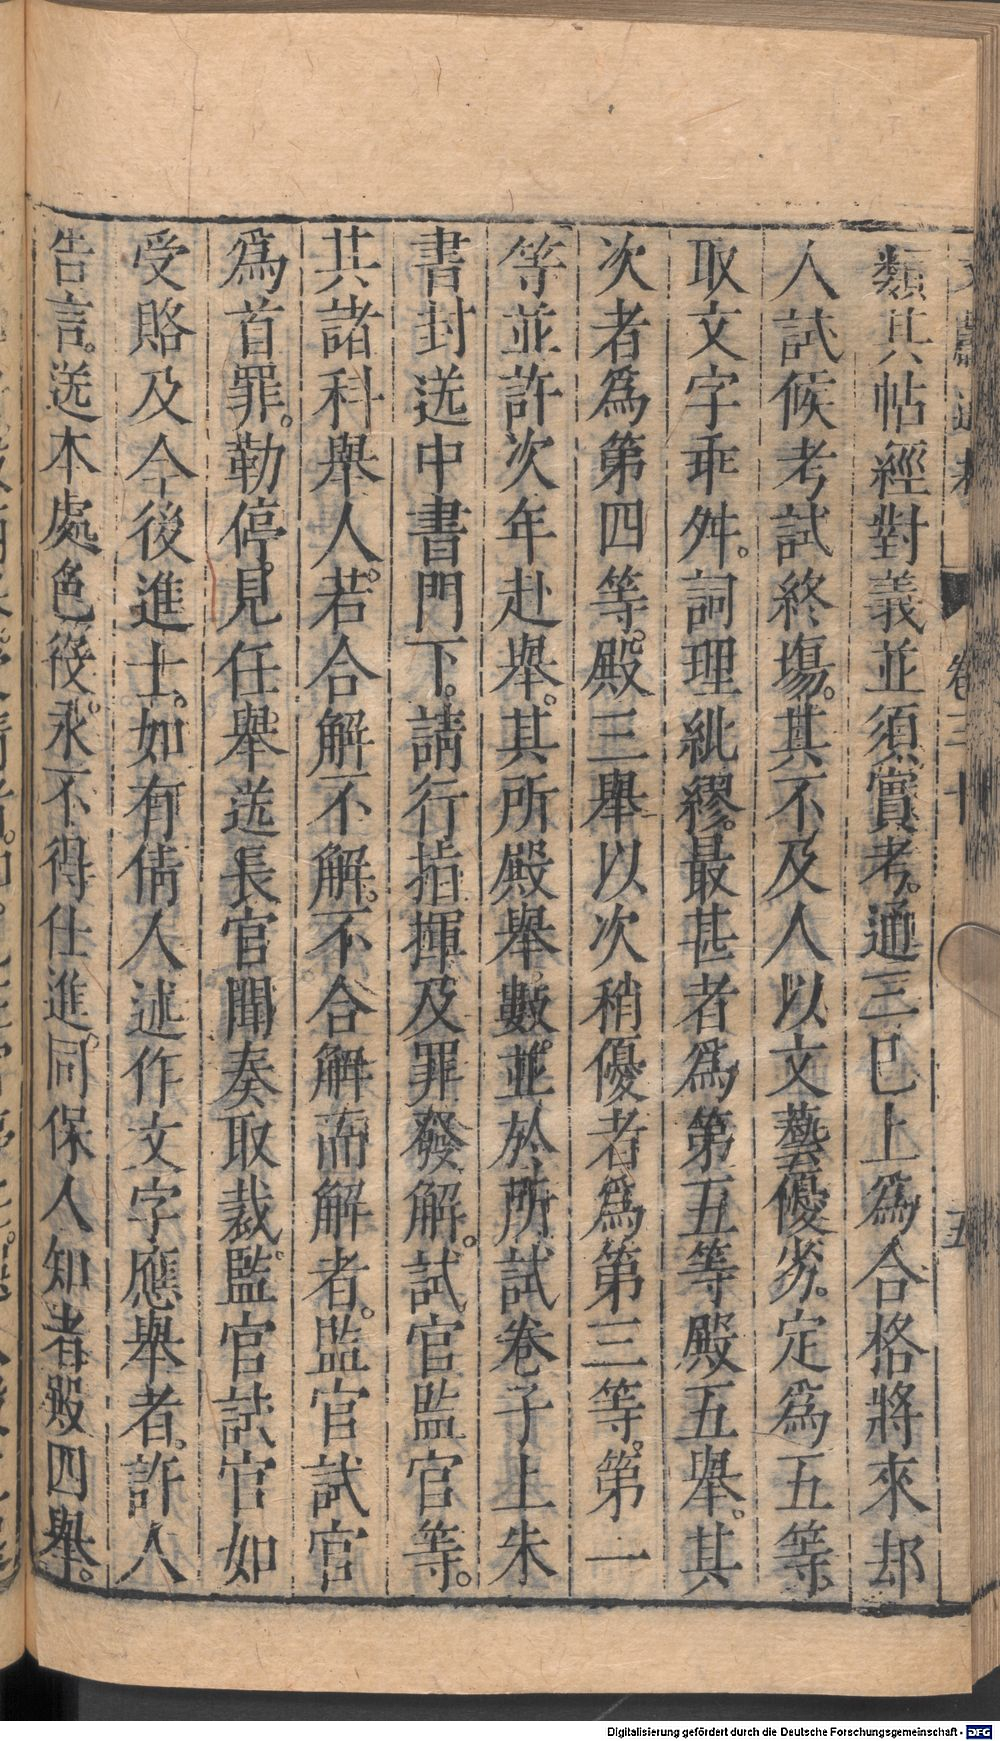 文獻通考 卷三十 五
類其帖經對義並須實考。通三巳上爲合格將來却
人試候考試終塲。其不及人以文藝優劣。定爲五等。
取文字乖舛。詞理紕繆。最甚者爲第五等殿五舉。其
次者爲第四等。殿三舉以次稍優者爲第三等。第一
等並許次年赴舉。其所殿舉數。並於所試卷子上朱
書封送中書門下。請行指揮及罪發解。試官監官等。
其諸科舉人。若合解不解。不合解而解者。監官試官
爲首罪。勒停。見任舉送長官聞奏取裁。監官試官如
受賂及今後進士。如有倩人述作文字應舉者。許人
告言。送本處色役。永不得仕進。同保人知者殿四舉。
Digitalisierung gefördert durch die Deutsche Forschungsgemeinschaft - DFG